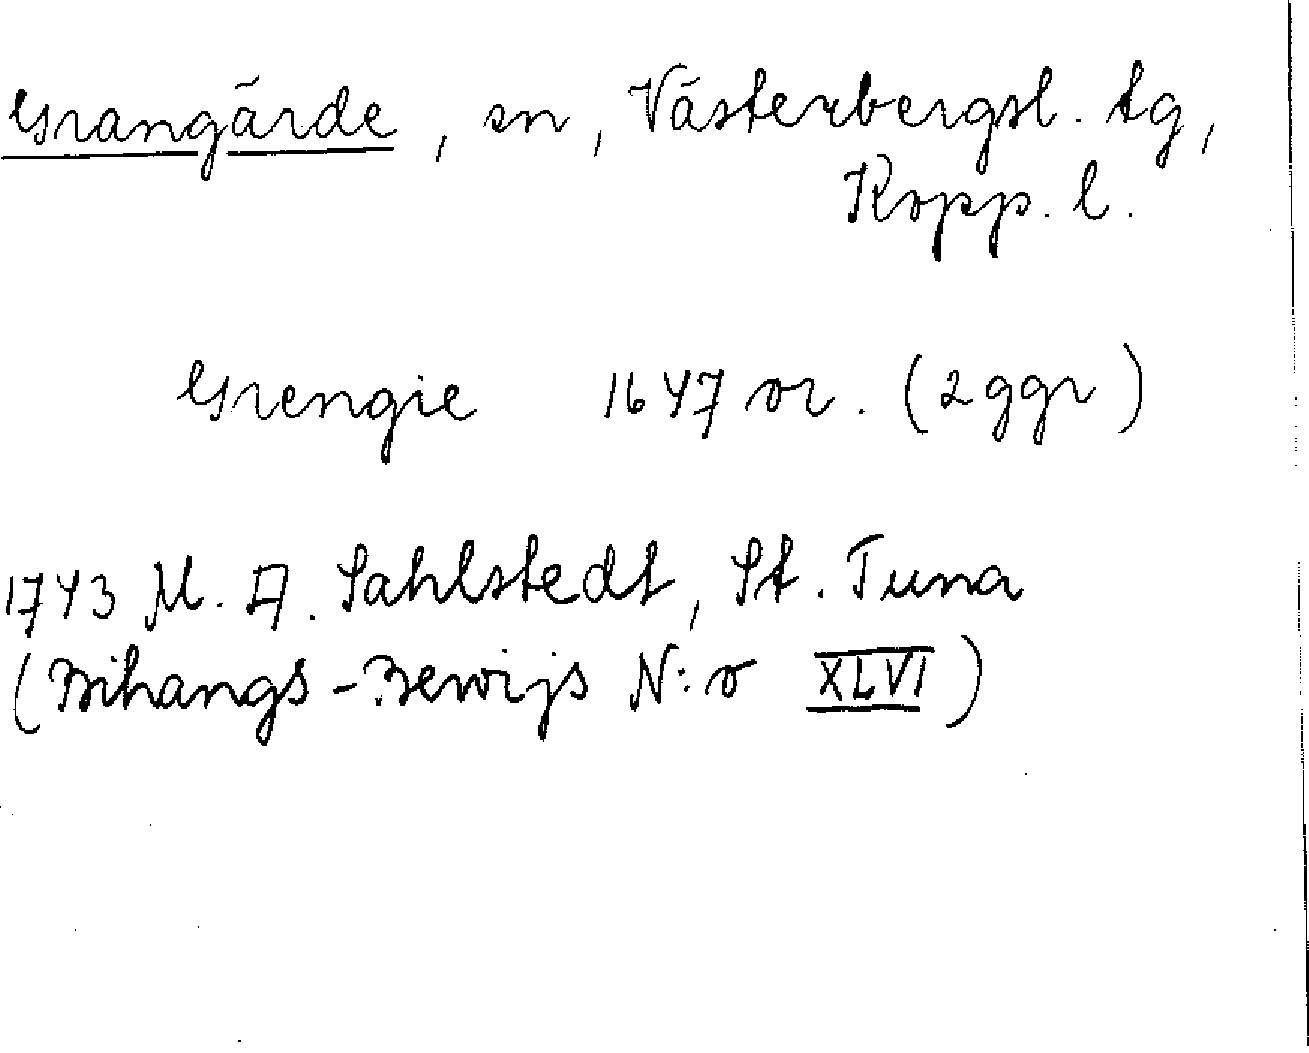 Grangärde, sn, Västerbergsl. tg,
Kopp. l.
Grengie 1647 or. (2 ggr)
1743 M. A. Sahlstedt, St. Tuna
(Bihangs-Bewijs N:o XLVI)